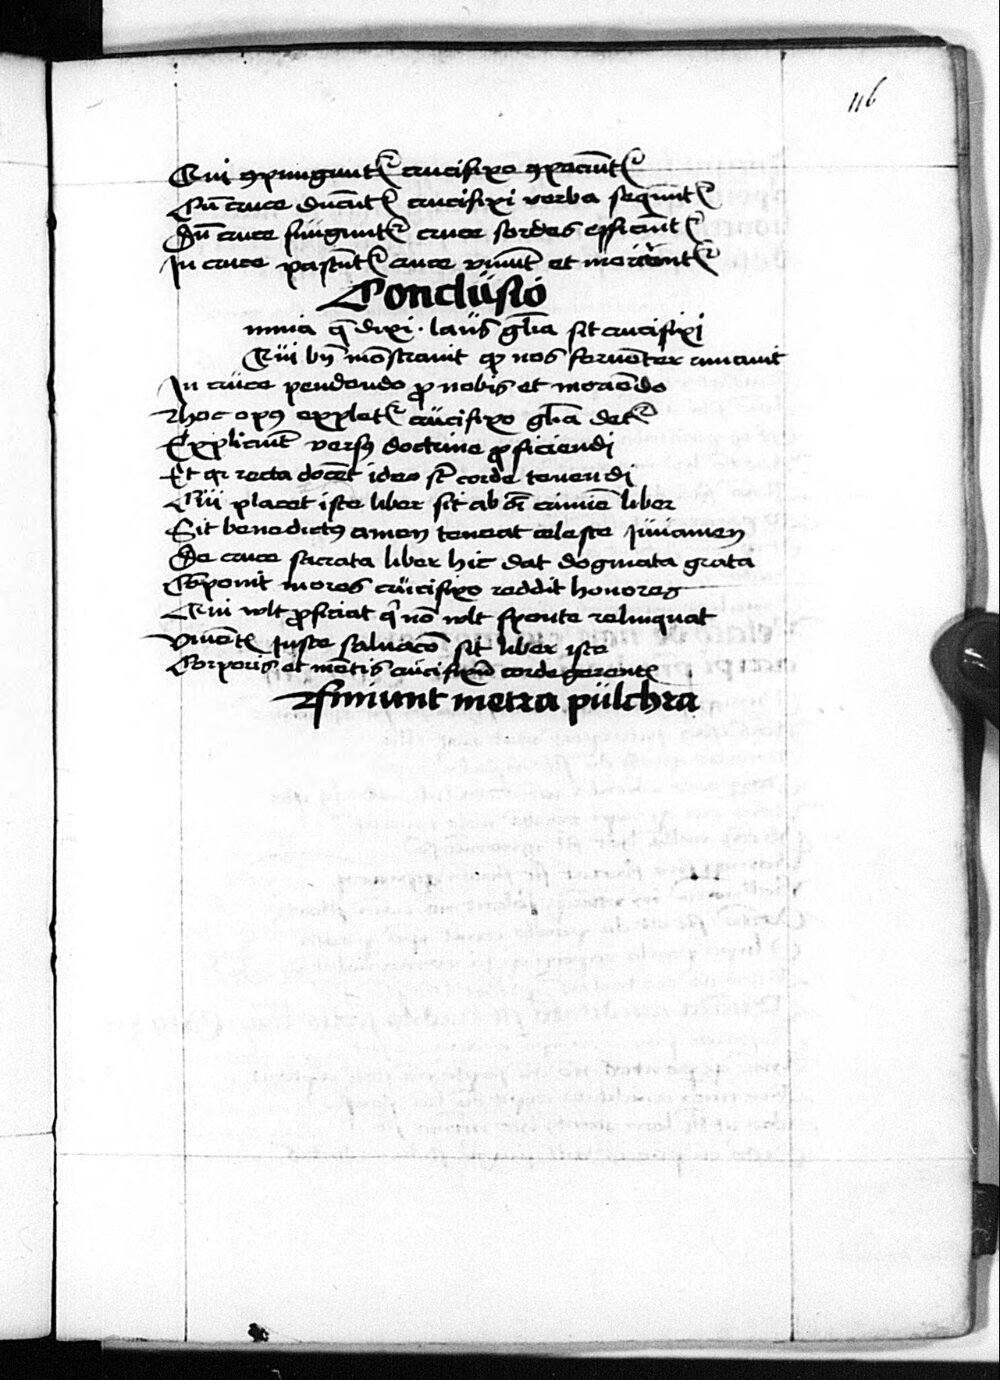 116
Qui ꝯpungunt᷑ crucifixo ꝯpaciūt᷑
Cū cruce ducūt᷑ crucifixi verba sequūt᷑
Dū cruce fūguntᷣ cruce sordes efficiūt᷑
In cruce pascūt᷑ cruce viuūt et moriūt᷑
Conclusio
mnia q̄ dixi · laus gl̄ia sit crucifixi
Qui bn̄ mōstrauit ꝙ nos feruēter amauit
In cruce pendendo ꝓ nobis et moriēdo
hoc opꝰ explet᷑ crucifixo gl̄ia det᷑
Expliciūt versꝰ doctrine ꝓficiendi
Et qr recta docēt ideo sūt corde tenendi
Cui placet iste liber sit ab oī crimīe liber
Sit benedictꝰ amen teneat celeste iuuamen
De cruce sacrata liber hic dat dogmata grata
Cōponit mores crucifixo reddit honores
Qui wlt ꝓficiat qͥ nō wlt sponte relinquat
Viuētꝭ iuste saluacō sit liber iste
Corporis et mētis crucifixū corde gerentꝭ
Finiunt metra pulchra